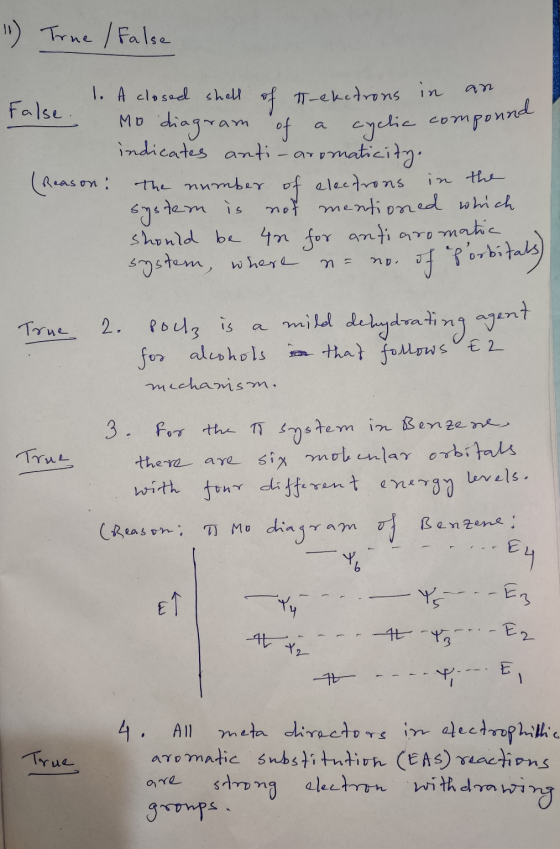 11) True / False
1. A closed shell of π-electrons in an
False. MO diagram of a cyclic compound
indicates anti-aromaticity.
(Reason: the number of electrons in the
system is not mentioned which
should be 4n for antiaromatic
system, where n = no. of 'p' orbitals)
True 2. POCl3 is a mild dehydrating agent
for alcohols that follows E2
mechanism.
3. For the π system in Benzene,
True there are six molecular orbitals
with four different energy levels.
(Reason: π MO diagram of Benzene:
Ψ6 E4
E↑ Ψ4 Ψ5 E3
Ψ2 Ψ3 E2
Ψ1 E1
4. All meta directors in electrophillic
True aromatic substitution (EAS) reactions
are strong electron withdrawing
groups.